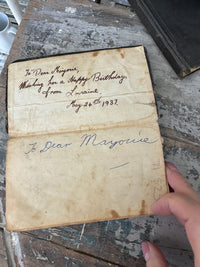 To Dear Mayonie,
Wishing her a Happy Birthday.
from Lorraine,
May 26th 1937
To Dear Mayonie